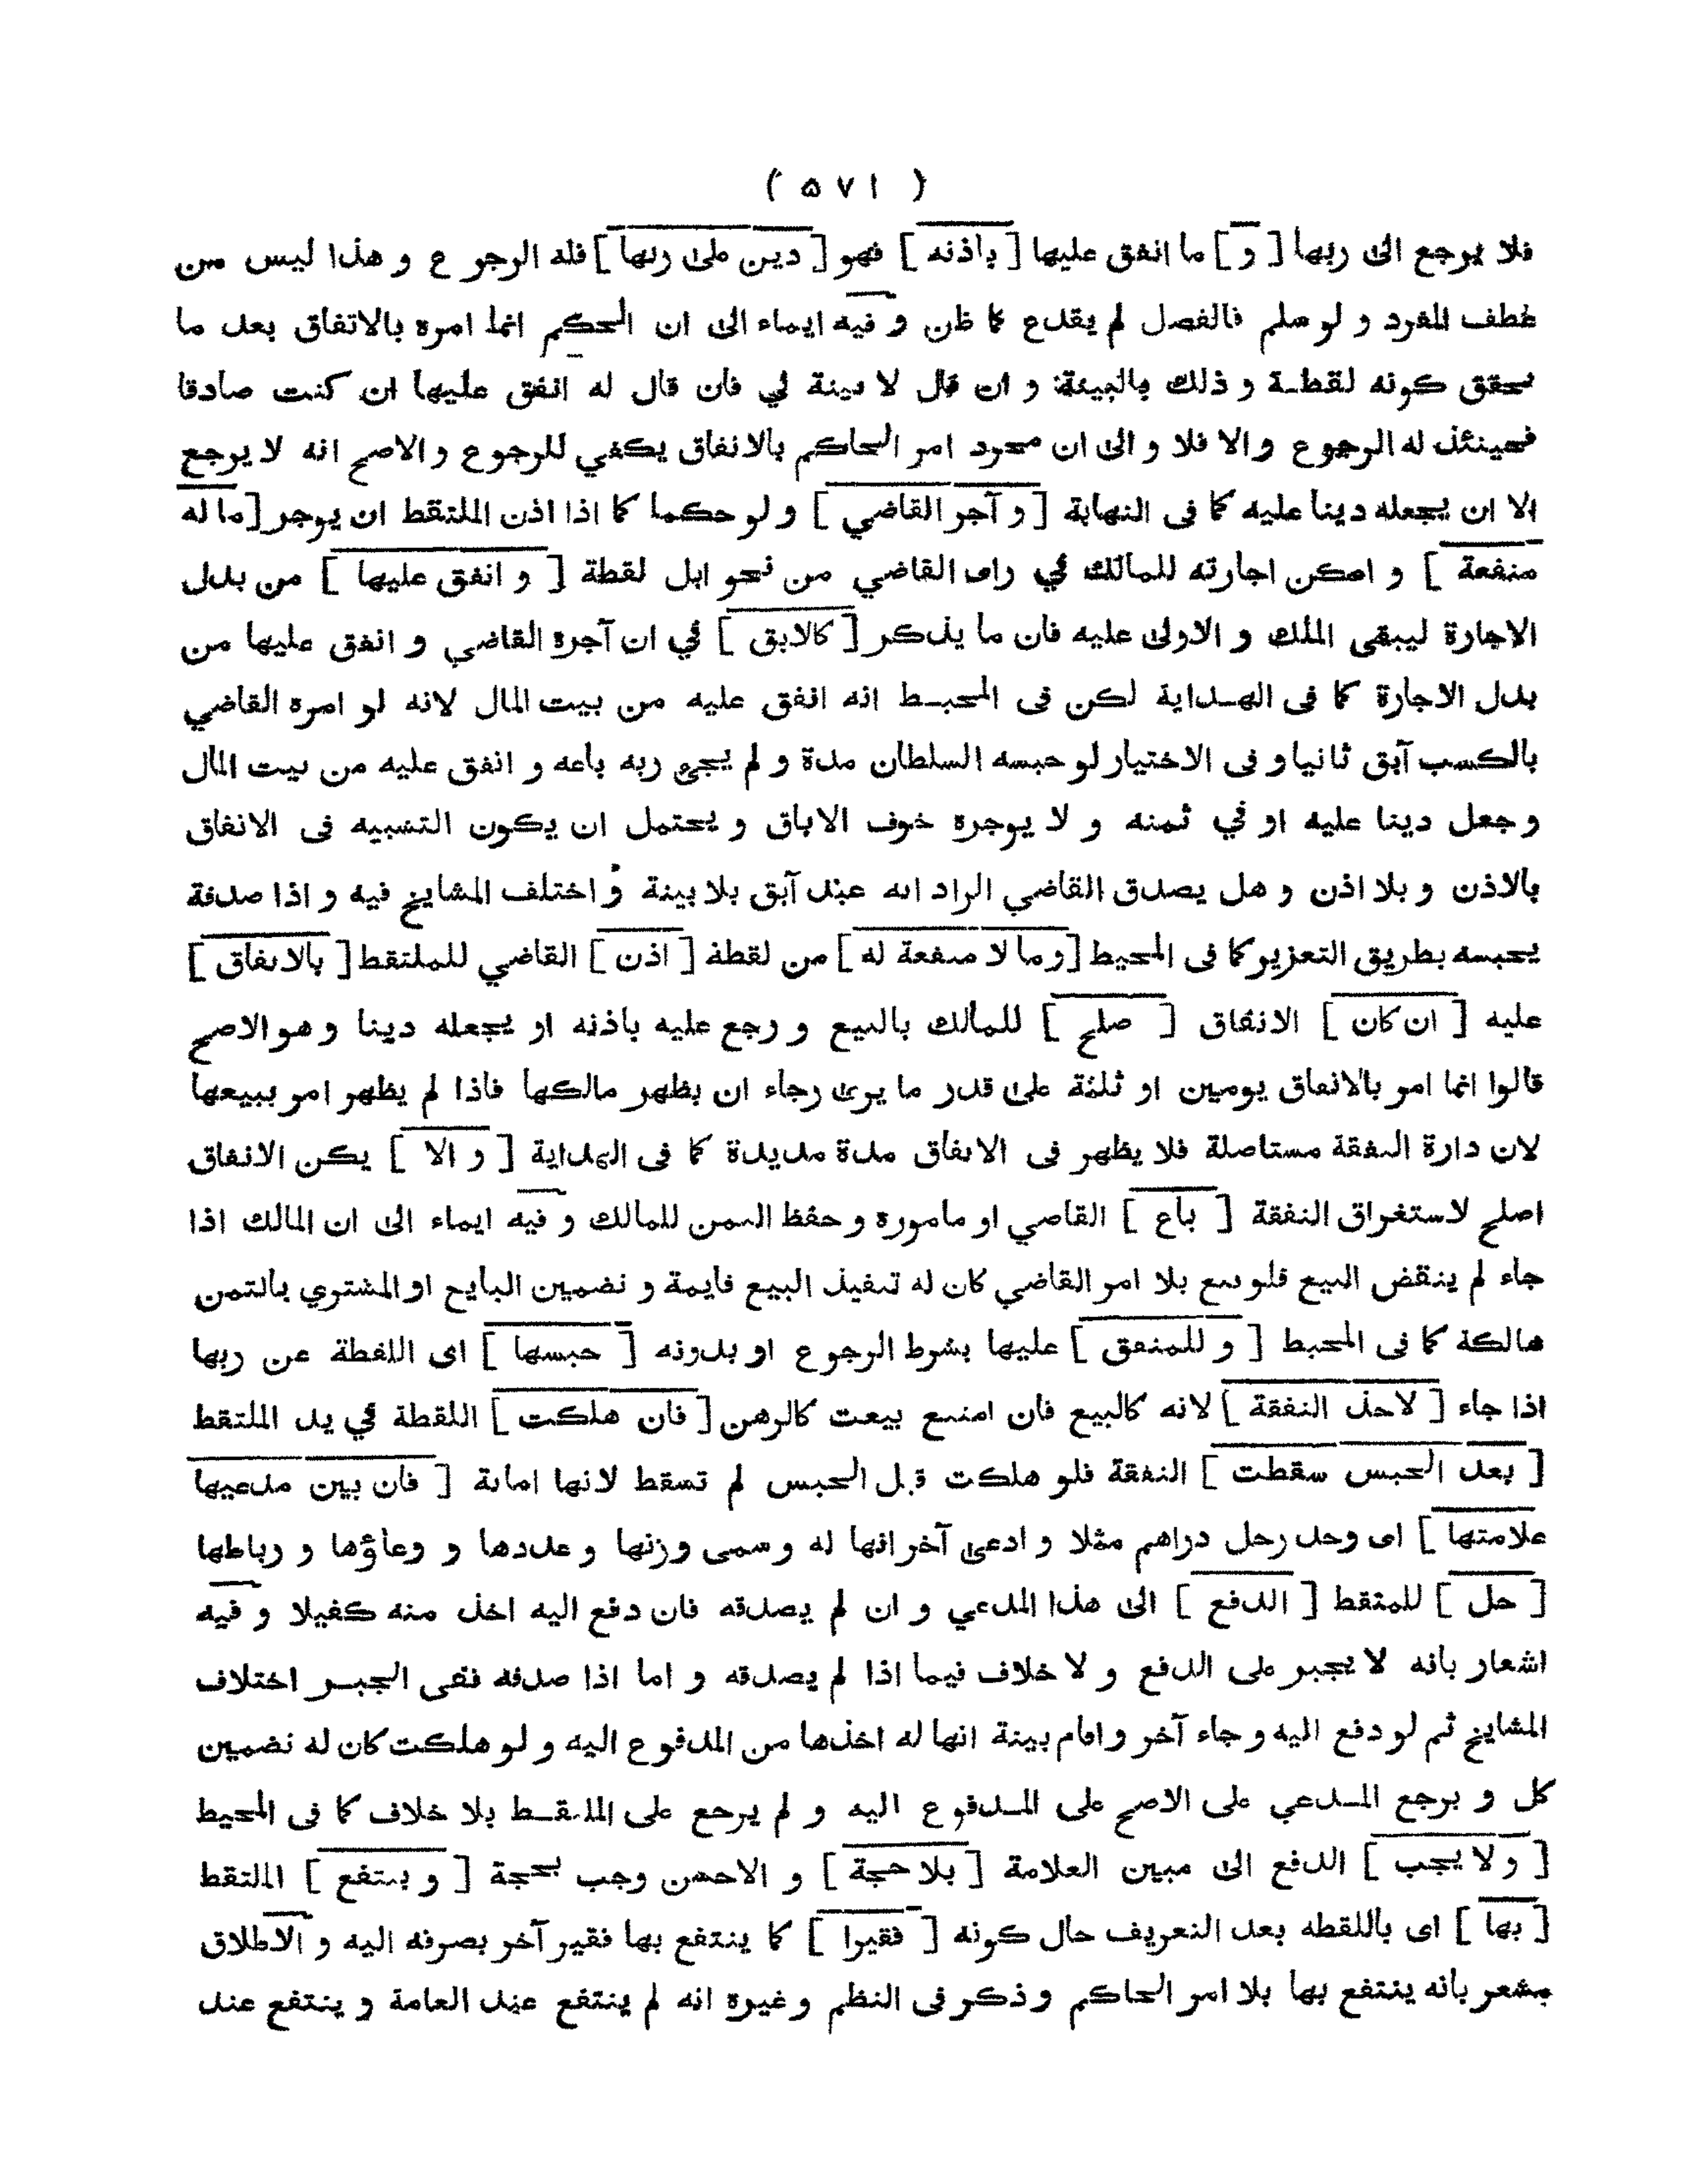 ( ٥٧١ )
فلا يرجع الى ربها [ و ] ما انفق عليها [ باذنه ] فهو [ دين على ربها ] فله الرجوع و هذا ليس من
عطف المفرد و لو سلم فالفصل لم يقدح كما ظن و فيه ايماء الى ان الحكم انما امره بالاتفاق بعد ما
تحقق كونه لقطة و ذلك بالبينة و ان قال لا بينة لي فان قال له انفق عليها ان كنت صادقا
فحينئذ له الرجوع و الا فلا و الى ان مجرد امر الحاكم بالانفاق يكفي للرجوع و الاصح انه لا يرجع
الا ان يجعله دينا عليه كما فى النهاية [ و آجر القاضي ] و لو حكما كما اذا اذن الملتقط ان يوجر [ ما له
منفعة ] و امكن اجارته للمالك في راى القاضي من نحو ابل لقطة [ و انفق عليها ] من بدل
الاجارة ليبقى الملك و الاولى عليه فان ما يذكر [ كالابق ] في ان آجرة القاضي و انفق عليها من
بدل الاجارة كما فى الهداية لكن فى المحيط انه انفق عليه من بيت المال لانه لو امره القاضي
بالكسب آبق ثانيا و فى الاختيار لو حبسه السلطان مدة و لم يجئ ربه باعه و انفق عليه من بيت المال
و جعل دينا عليه او في ثمنه و لا يوجره خوف الاباق و يحتمل ان يكون التشبيه فى الانفاق
بالاذن و بلا اذن و هل يصدق القاضي الراد انه عبد آبق بلا بينة و اختلف المشايخ فيه و اذا صدقة
يحبسه بطريق التعزير كما فى المحيط [ و ما لا منفعة له ] من لقطة [ اذن ] القاضي للملتقط [ بالانفاق ]
عليه [ ان كان ] الانفاق [ صلح ] للمالك بالبيع و رجع عليه باذنه او يجعله دينا و هو الاصح
قالوا انما امر بالانفاق يومين او ثلثة على قدر ما يرى رجاء ان يظهر مالكها فاذا لم يظهر امر ببيعها
لان دارة النفقة مستاصلة فلا يظهر فى الانفاق مدة مديدة كما فى الهداية [ و الا ] يكن الانفاق
اصلح لاستغراق النفقة [ باع ] القاضي او ماموره و حفظ الثمن للمالك و فيه ايماء الى ان المالك اذا
جاء لم ينقض البيع فلو بيع بلا امر القاضي كان له تنفيذ البيع قايمة و تضمين البايع او المشتري بالثمن
هالكة كما فى المحيط [ و للمنفق ] عليها بشرط الرجوع او بدونه [ حبسها ] اى اللقطة عن ربها
اذا جاء [ لاخذ النفقة ] لانه كالبيع فان امتنع بيعت كالرهن [ فان هلكت ] اللقطة في يد الملتقط
[ بعد الحبس سقطت ] النفقة فلو هلكت قبل الحبس لم تسقط لانها امانة [ فان بين مدعيها
علامتها ] اى وجد رجل دراهم مثلا و ادعى آخر انها له و سمى وزنها و عددها و وعاؤها و رباطها
[ حل ] للمتقط [ الدفع ] الى هذا المدعي و ان لم يصدقه فان دفع اليه اخذ منه كفيلا و فيه
اشعار بانه لا يجبر على الدفع و لا خلاف فيما اذا لم يصدقه و اما اذا صدقه نفى الجبر اختلاف
المشايخ ثم لو دفع اليه و جاء آخر و اقام بينة انها له اخذها من المدفوع اليه و لو هلكت كان له تضمين
كل و يرجع المدعي على الاصح على المدفوع اليه و لم يرجع على الملتقط بلا خلاف كما فى المحيط
[ و لا يجب ] الدفع الى مبين العلامة [ بلا حجة ] و الاحسن وجب بحجة [ و ينتفع ] الملتقط
[ بها ] اى باللقطه بعد التعريف حال كونه [ فقيرا ] كما ينتفع بها فقير آخر بصرفه اليه و الاطلاق
مشعر بانه ينتفع بها بلا امر الحاكم و ذكر فى النظم و غيره انه لم ينتفع عند العامة و ينتفع عند